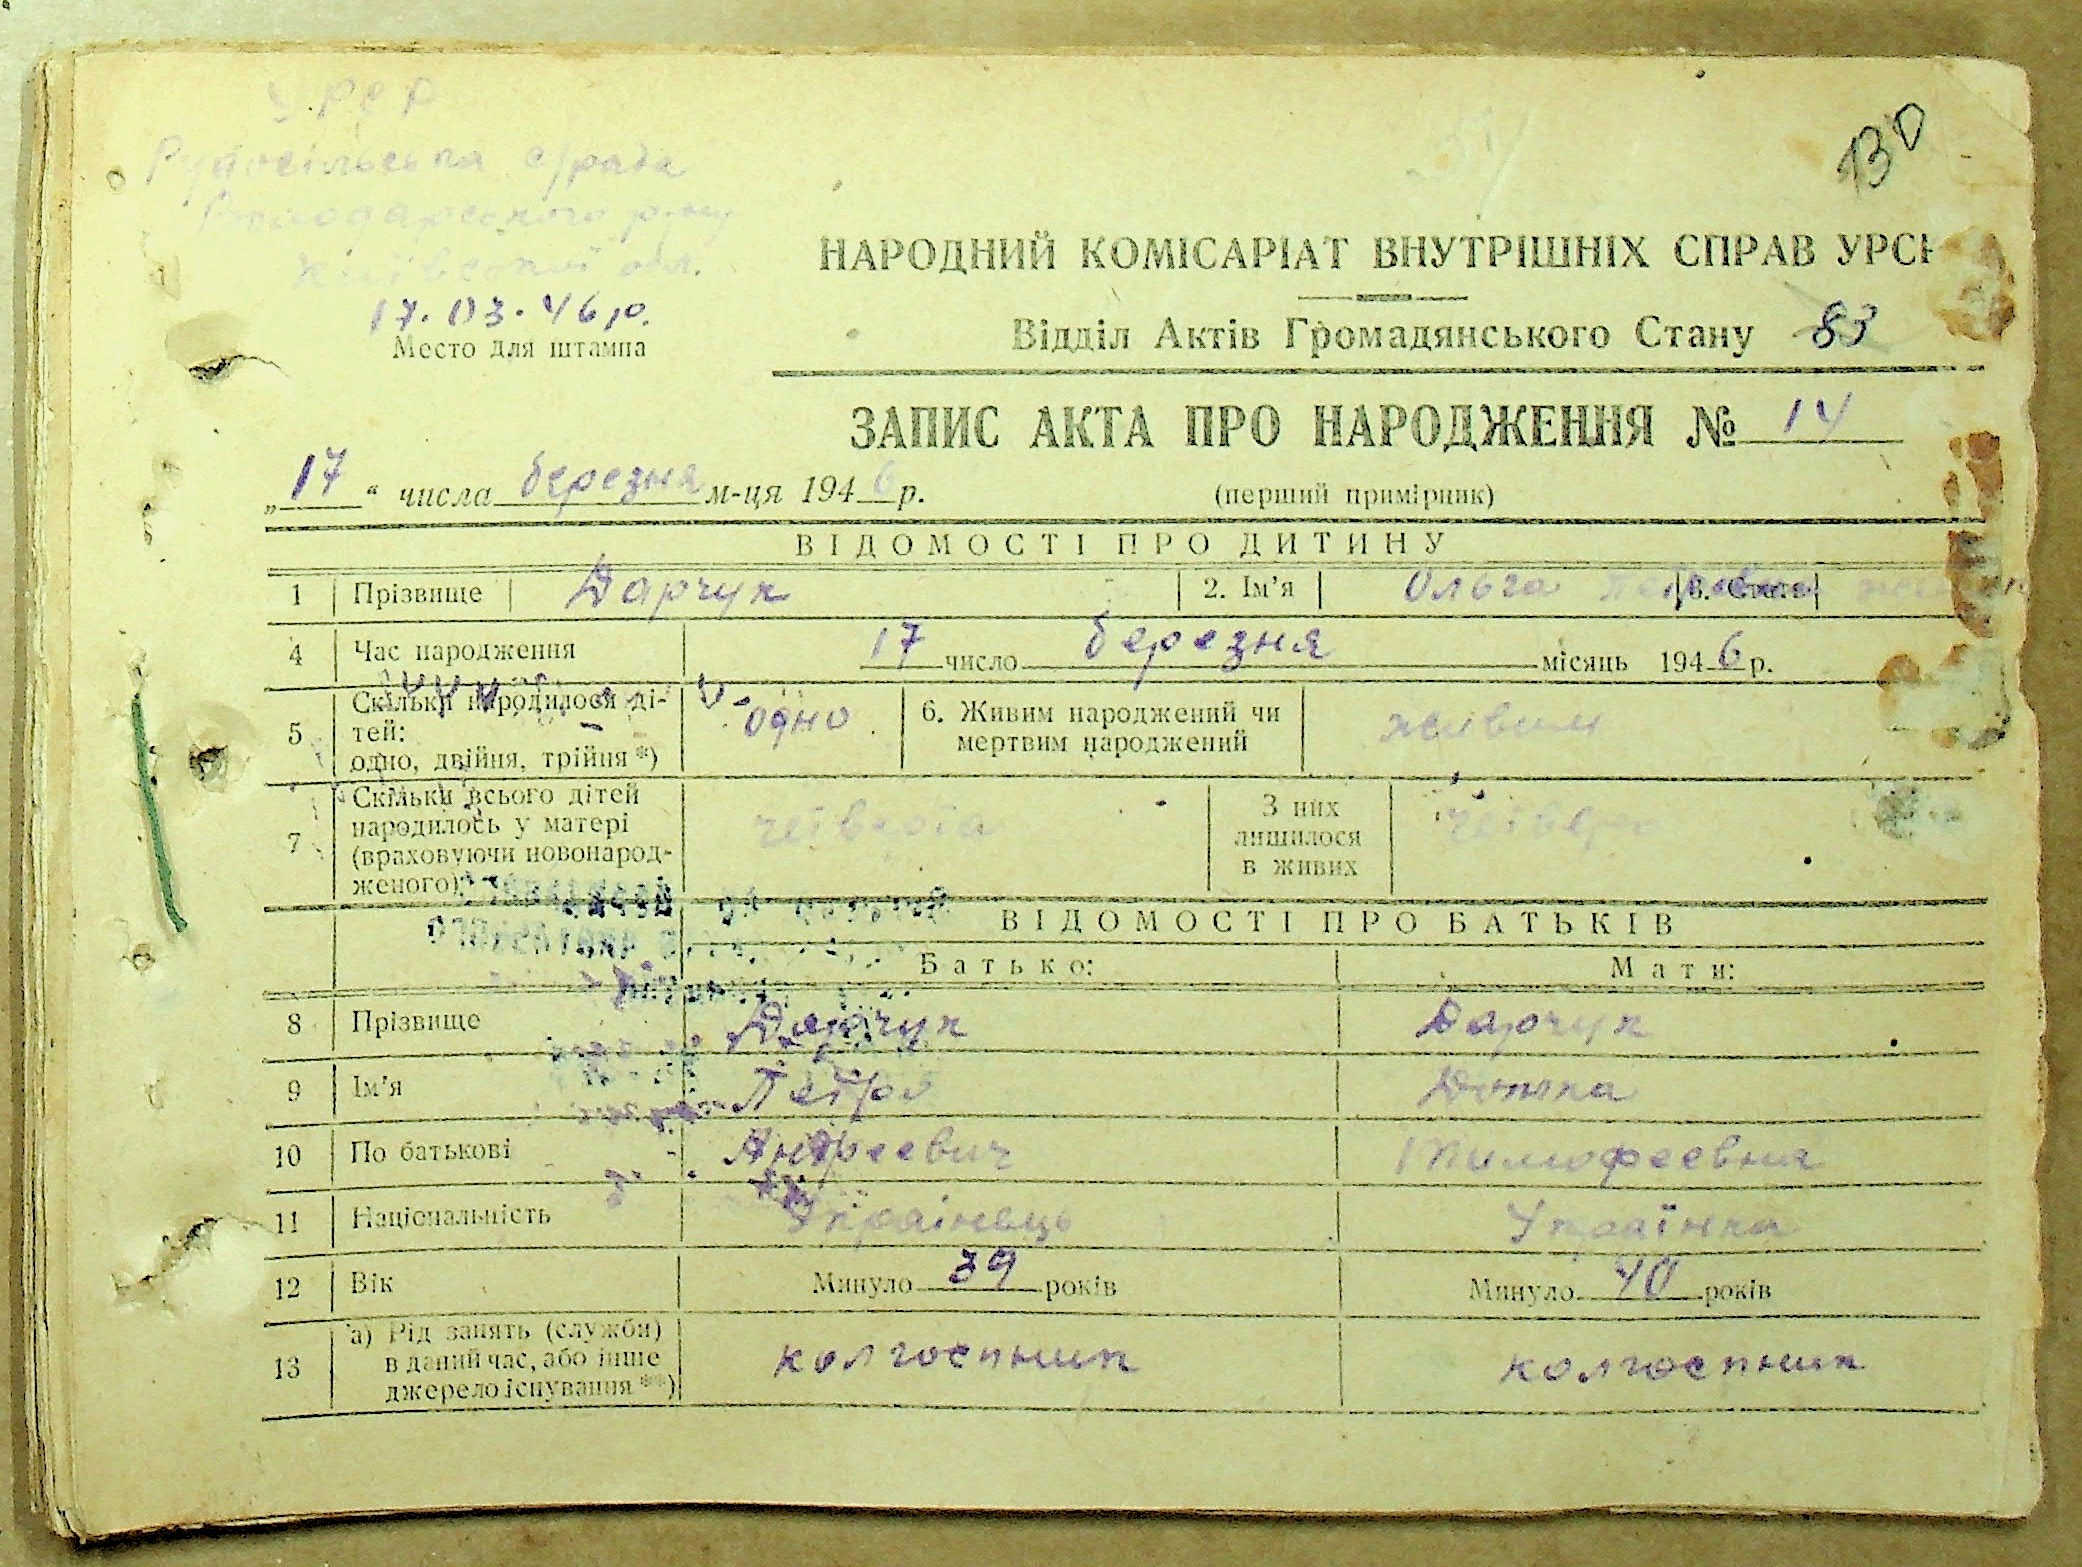 УРСР
Руде сільська с/рада
Володарського р-ну
Київської обл.
17.03.46 р.
Место для штампа
130
НАРОДНИЙ КОМІСАРІАТ ВНУТРІШНІХ СПРАВ УРСР
Відділ Актів Громадянського Стану 83
ЗАПИС АКТА ПРО НАРОДЖЕННЯ № 14
„17“ числа березня м-ця 1946 р. (перший примірник)
ВІДОМОСТІ ПРО ДИТИНУ
1 Прізвище Дарчук 2. Ім'я Ольга Петрівна 3. Стать
4 Час народження 17 число березня місяць 1946 р.
5 Скільки народилося ді-
тей:
одно, двійня, трійня *) одно 6. Живим народжений чи
мертвим народжений живим
7 Скільки всього дітей
народилось у матері
(враховуючи новонарод-
женого) четверта З них
лишилося
в живих четверо
ВІДОМОСТІ ПРО БАТЬКІВ
Батько: Мати:
8 Прізвище Дарчук Дарчук
9 Ім'я Петро Домна
10 По батькові Андреевич Тимофеевна
11 Національність Українець Українка
12 Вік Минуло 39 років Минуло 40 років
13 а) Рід занять (служби)
в даний час, або інше
джерело існування **) колгоспник колгоспник